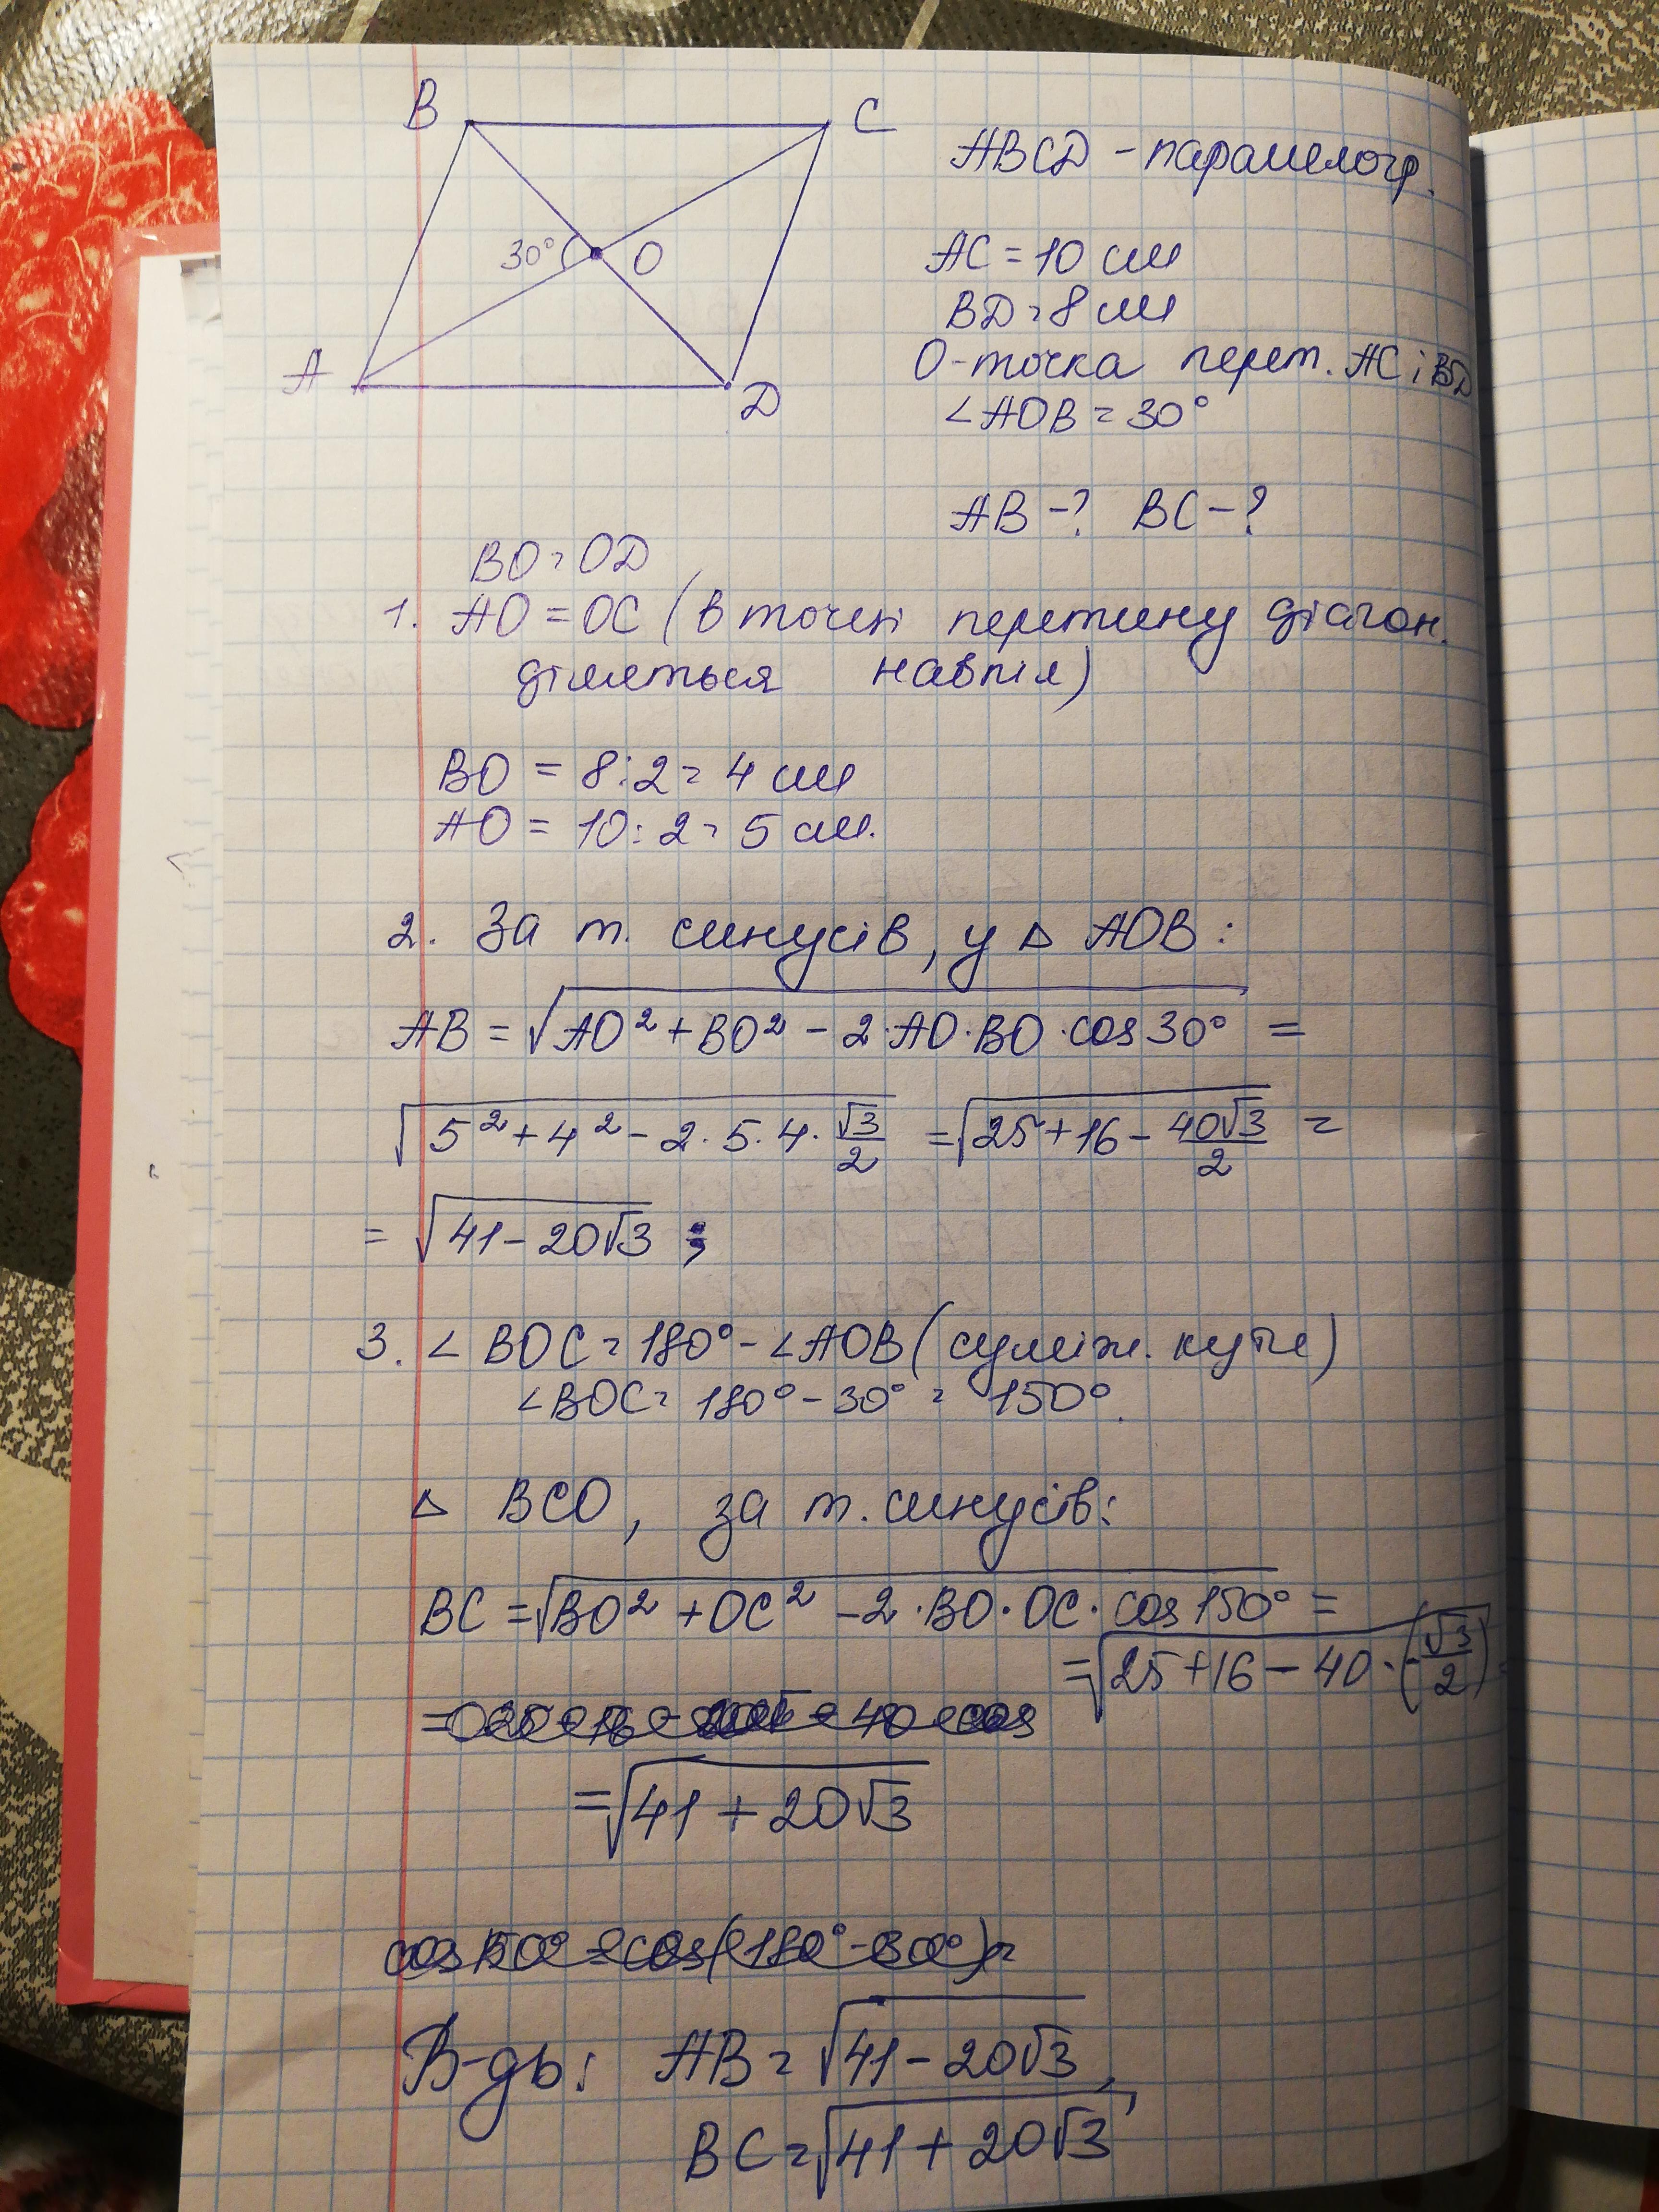 B
C
30°
O
A
D
ABCD - паралелогр.
AC = 10 см
BD = 8 см
O - точка перет. AC і BD
∠AOB = 30°
AB - ? BC - ?
BO = OD
1. AO = OC (в точці перетину діагон.
діляться навпіл)
BO = 8:2 = 4 см
AO = 10:2 = 5 см.
2. За т. синусів, у △ AOB:
AB = √(AO² + BO² - 2·AO·BO·cos30°) =
√(5² + 4² - 2·5·4·√3/2) = √(25 + 16 - 40√3/2) =
= √(41 - 20√3) ;
3. ∠BOC = 180° - ∠AOB (суміж. кути)
∠BOC = 180° - 30° = 150°.
△ BCO, за т. синусів:
BC = √(BO² + OC² - 2·BO·OC·cos150°) =
= √(25 + 16 - 40·(-√3/2)) =
= √(41 + 20√3)
cos150° = cos(180° - 30°) =
В-дь: AB = √(41 - 20√3),
BC = √(41 + 20√3)